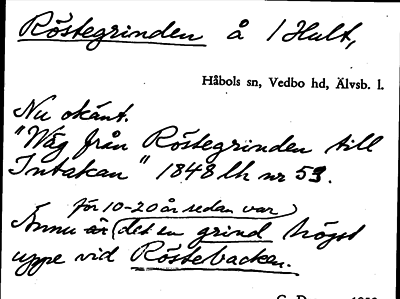 Röstegrinden å 1 Hult,
Håbols sn, Vedbo hd, Älvsb. l.
Nu okänt.
"Väg från Röstegrinden till
Intakan" 1848 lh nr 53.
för 10-20 år sedan var
Ännu är det en grind högst
uppe vid Röstebacken.